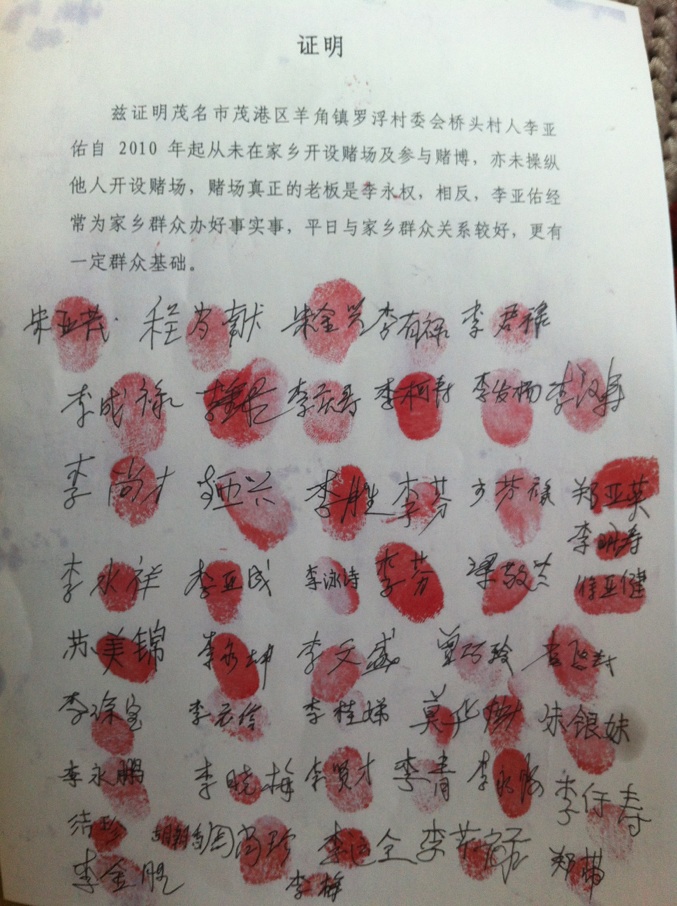 证明
兹证明茂名市茂港区羊角镇罗浮村委会桥头村人李亚
佑自 2010 年起从未在家乡开设赌场及参与赌博，亦未操纵
他人开设赌场，赌场真正的老板是李永权，相反，李亚佑经
常为家乡群众办好事实事，平日与家乡群众关系较好，更有
一定群众基础。
朱亚茂 程肖献 朱金兴 李有禄 李君禄
李成禄 李庆寿 李柯寿 李汉寿
李尚才 李胜 李芬 郑亚英
李明寿
李水祥 李亚成 李泳诗 李芬 梁敬芳
苏美锦 李永坤 李文盛
李琼宝 李桂娣 莫华娣 朱银妹
李永鹏 李晓梅 李贤才 李青
周尚珍
李金胜 李梅 郑带